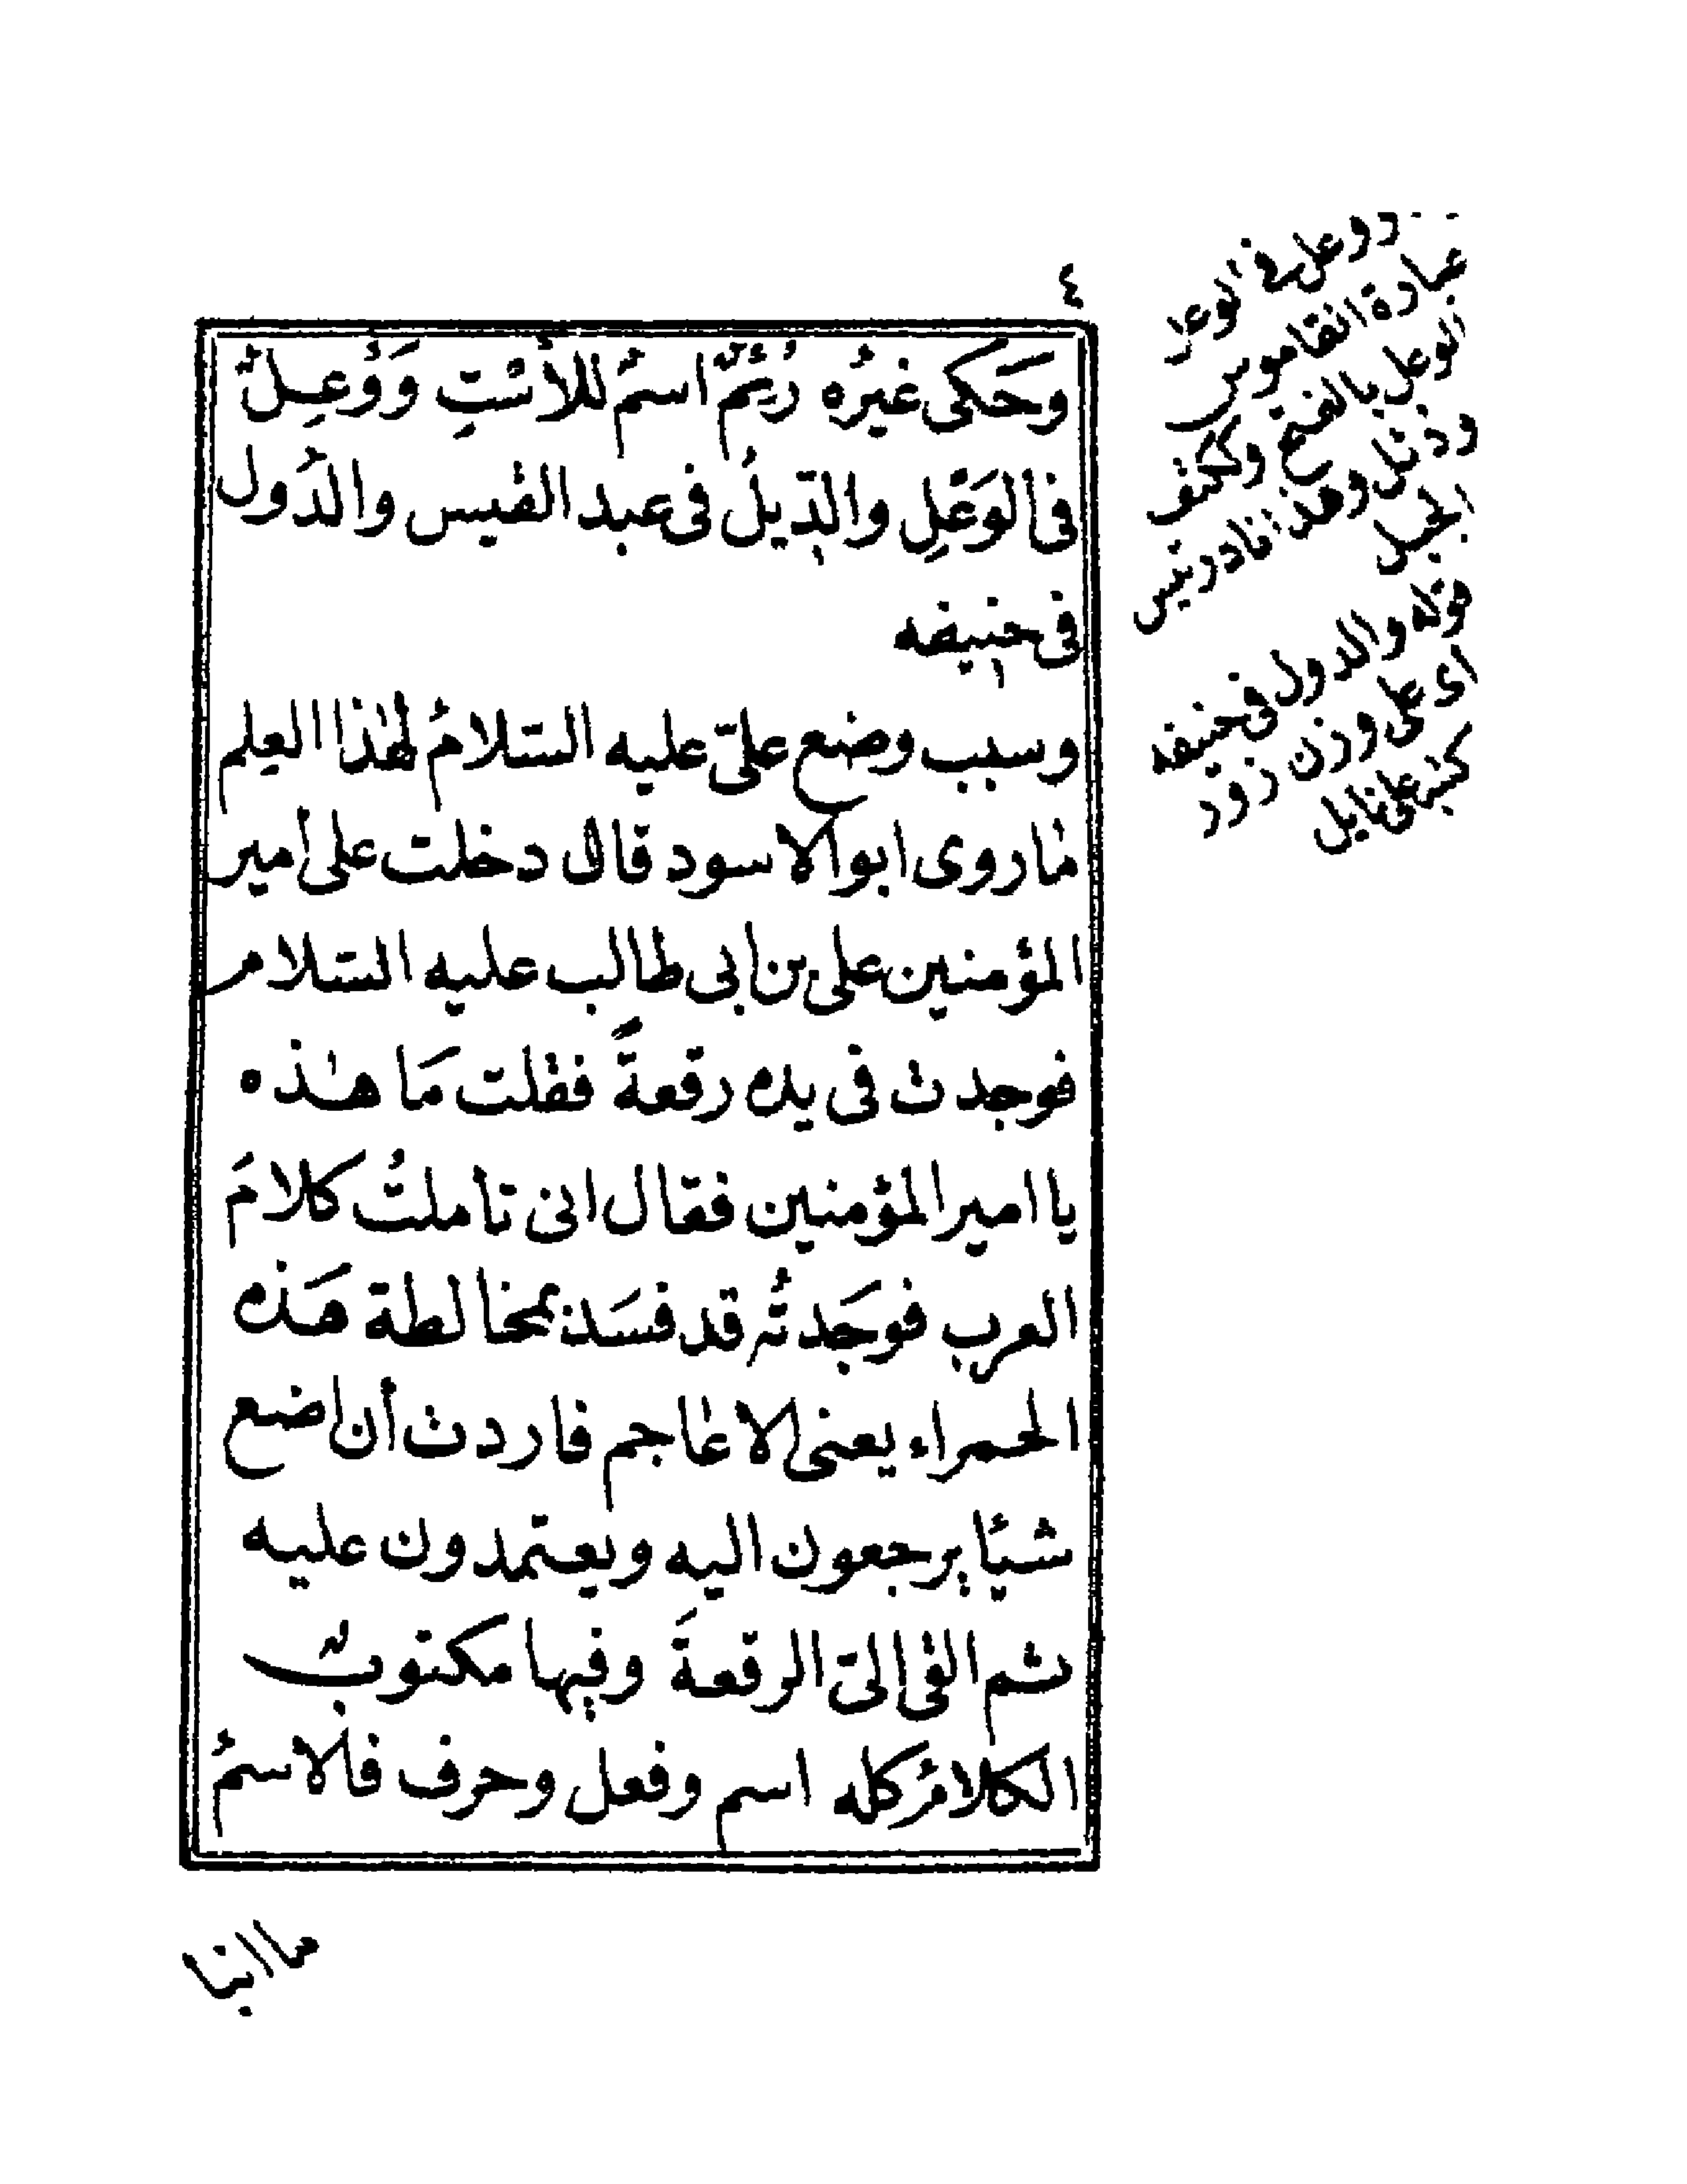 ٤
وَحَكى غيرُه رُئِمٌ اسمٌ للأسْتِ وَوُعِلٌ
فى الوَعَلِ والدِّيلُ فى عبد القيس والدُول
فى حنيفه
وسبب وضع علىّ عليه السّلامُ لهٰذا العِلم
مٰا روى ابو الاسود قال دخلت على أمير
المؤمنين على بن ابى طالب عليه السّلام
فوجدت فى يده رقعةً فقلت مَا هٰذه
يا امير المؤمنين فقال انى تأملتُ كلامَ
العرب فوجَدتُه قد فسَد بمخالطة هَذه
الحمراء يعنى الاعٰاجم فاردت أن اضع
شيئًا يرجعون اليه ويعتمدون عليه
ثم القى الىّ الرقعةَ وفيها مكتوبٌ
الكلامُ كله اسم وفعل وحرف فالاسمُ
ما انبا
دوعل فى الوعل
عبارة القاموس
الوعل بالفتح وككتف
ودئل وهذا نادر تيس
الجبل
قوله والدول فى حنيفه
اى على وزن زود